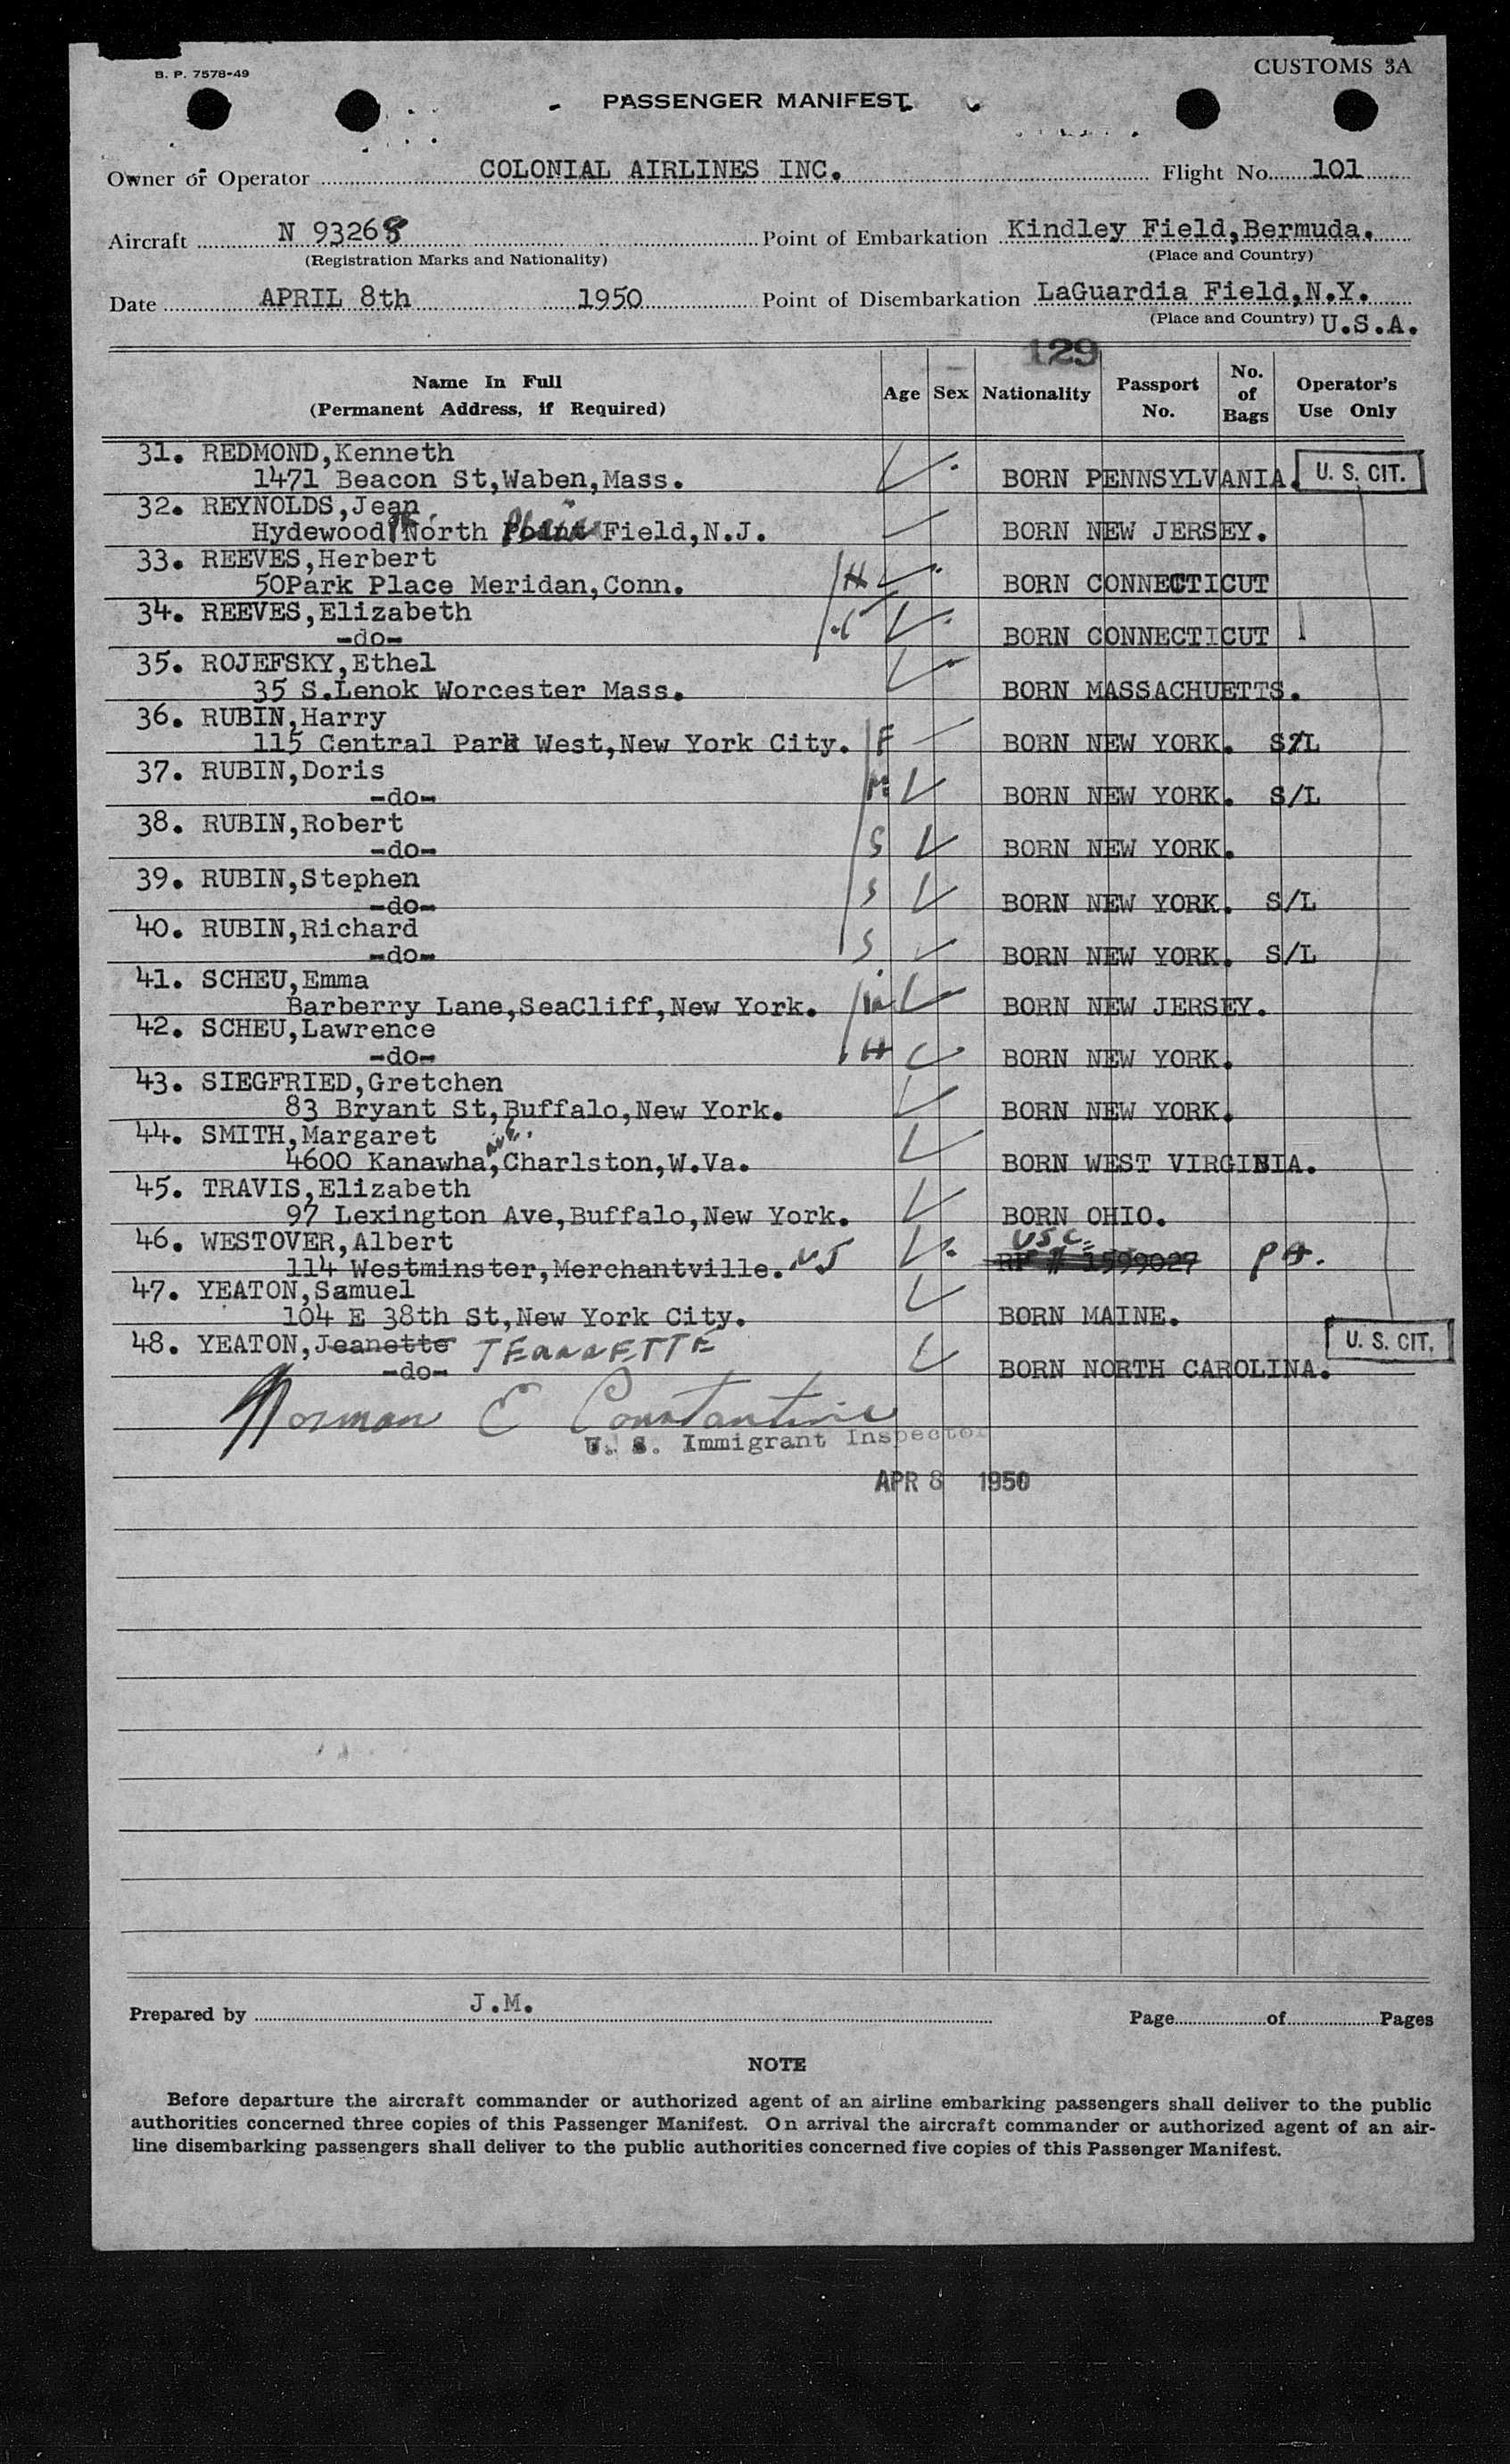 B. P. 7578-49
CUSTOMS 3A
PASSENGER MANIFEST
Owner or Operator COLONIAL AIRLINES INC. Flight No. 101
Aircraft N 93268 Point of Embarkation Kindley Field,Bermuda.
(Registration Marks and Nationality) (Place and Country)
Date APRIL 8th 1950 Point of Disembarkation LaGuardia Field,N.Y.
(Place and Country) U.S.A.
129
Name In Full (Permanent Address, if Required) Age Sex Nationality Passport No. No. of Bags Operator's Use Only
31. REDMOND,Kenneth
1471 Beacon St,Waben,Mass. BORN PENNSYLVANIA. U. S. CIT.
32. REYNOLDS,Jean
Hydewood North Plain Field,N.J. BORN NEW JERSEY.
33. REEVES,Herbert
50Park Place Meridan,Conn. H BORN CONNECTICUT
34. REEVES,Elizabeth
-do- BORN CONNECTICUT
35. ROJEFSKY,Ethel
35 S.Lenok Worcester Mass. BORN MASSACHUETTS.
36. RUBIN,Harry
115 Central Park West,New York City. F BORN NEW YORK. S/L
37. RUBIN,Doris
-do- M BORN NEW YORK. S/L
38. RUBIN,Robert
-do- S BORN NEW YORK.
39. RUBIN,Stephen
-do- S BORN NEW YORK. S/L
40. RUBIN,Richard
-do- S BORN NEW YORK. S/L
41. SCHEU,Emma
Barberry Lane,SeaCliff,New York. BORN NEW JERSEY.
42. SCHEU,Lawrence
-do- H BORN NEW YORK.
43. SIEGFRIED,Gretchen
83 Bryant St,Buffalo,New York. BORN NEW YORK.
44. SMITH,Margaret
4600 Kanawha, Ave. Charlston,W.Va. BORN WEST VIRGINIA.
45. TRAVIS,Elizabeth
97 Lexington Ave,Buffalo,New York. BORN OHIO.
46. WESTOVER,Albert USC.
114 Westminster,Merchantville. NJ 1599027
47. YEATON,Samuel
104 E 38th St,New York City. BORN MAINE.
48. YEATON,Jeanette JEANNETTE U. S. CIT.
-do- BORN NORTH CAROLINA.
Norman E Constantine
U. S. Immigrant Inspector
APR 8 1950
Prepared by J.M. Page of Pages
NOTE
Before departure the aircraft commander or authorized agent of an airline embarking passengers shall deliver to the public
authorities concerned three copies of this Passenger Manifest. On arrival the aircraft commander or authorized agent of an air-
line disembarking passengers shall deliver to the public authorities concerned five copies of this Passenger Manifest.